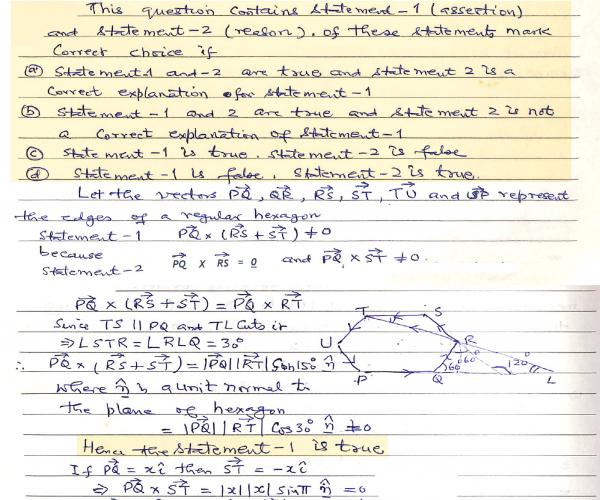 This question contains statement-1 (assertion)
and statement-2 (reason). of these statements mark
Correct choice if
(a) statement 1 and -2 are true and statement 2 is a
Correct explanation of for statement-1
(b) statement -1 and 2 are true and statement 2 is not
a correct explanation of statement-1
(c) state ment -1 is true. statement-2 is false
(d) statement -1 is false. statement-2 is true.
Let the vectors PQ→, QR→, RS→, ST→, TU→ and UP→ represent
the edges of a regular hexagon
Statement-1 PQ→ × (RS→ + ST→) ≠ 0
because
statement-2 PQ→ × RS→ = 0 and PQ→ × ST→ ≠ 0.
PQ→ × (RS→ + ST→) = PQ→ × RT→
Since TS || PQ and TL cuts it
⇒ ∠STR = ∠RLQ = 30°
∴ PQ→ × (RS→ + ST→) = |PQ→||RT→| Sin 150° n̂
where n̂ is a unit normal to
the plane of hexagon
= |PQ→||RT→| Cos 30° n̂ ≠ 0
Hence the statement-1 is true
If PQ→ = xî then ST→ = -xî
⇒ PQ→ × ST→ = |x||x| sinπ n̂ = 0
T
S
U
R
P
Q
L
60°
60°
120°